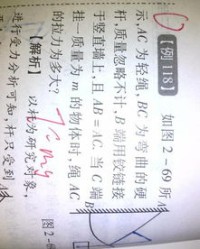 【例118】 如图2-69所
示,AC为轻绳,BC为弯曲的硬
杆,质量忽略不计,B端用铰链接
于竖直墙上,且AD=AC.当C端
挂一质量为m的物体时,绳AC
的拉力为多大?
【解析】 以杆为研究对象,
进行受力分析可知,杆只受到
图2-6
A
B